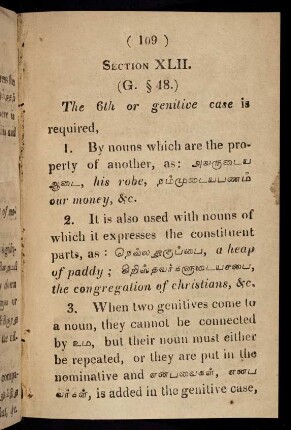 ( 109 )
SECTION XLII.
(G. § 48.)
The 6th or genitive case is
required,
1. By nouns which are the pro-
perty of another, as: அவருடைய
ஆடை, his robe, நம்முடையபணம்
our money, &c.
2. It is also used with nouns of
which it expresses the constituent
parts, as : a heap
of paddy ;
the congregation of christians, &c.
3. When two genitives come to
a noun, they cannot be connected
by உம, but their noun must either
be repeated, or they are put in the
nominative and என்பவைகள், என்ப
வர்கள், is added in the genitive case,